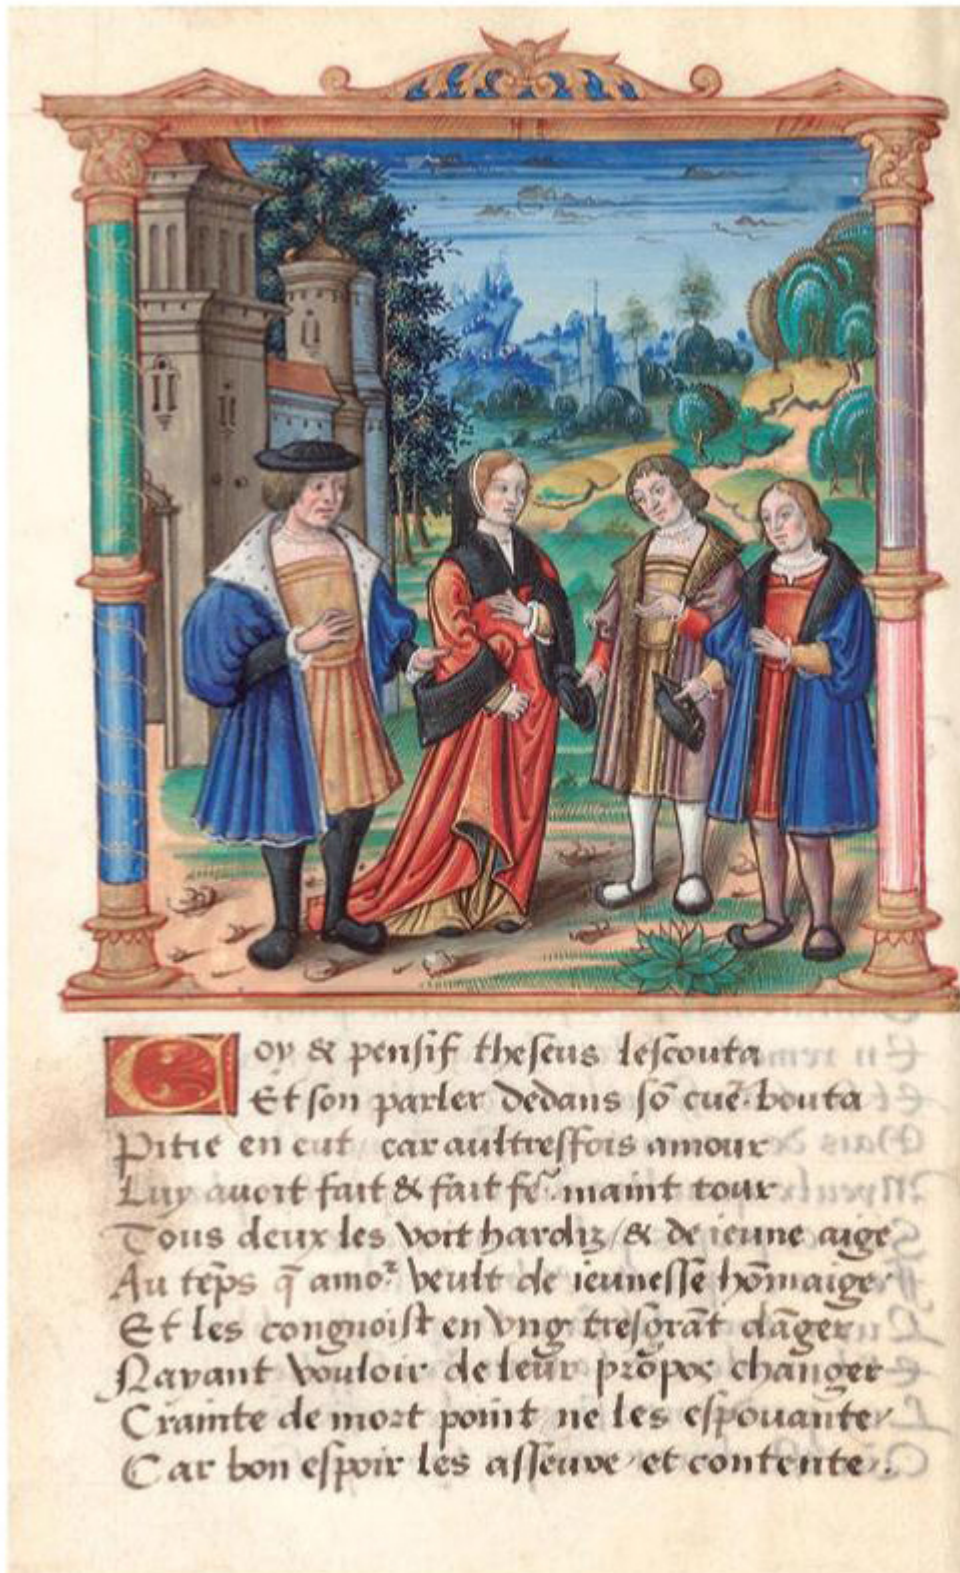 Coy & pensif theseus lescouta
Et son parler dedans sō cue᷑ bouta
Pitie en eut car aultresfois amour
Luy auoit fait & fait fe᷑ maint tour
Tous deux les voit hardiz / & de ieune aige
Au tēps q̄ amoʳ veult de ieunesse hōmaige
Et les congnoist en vng tresgrāt dāger
Nayant vouloir de leur propos changer
Crainte de mort point ne les espouante
Car bon espoir les asseure et contente.